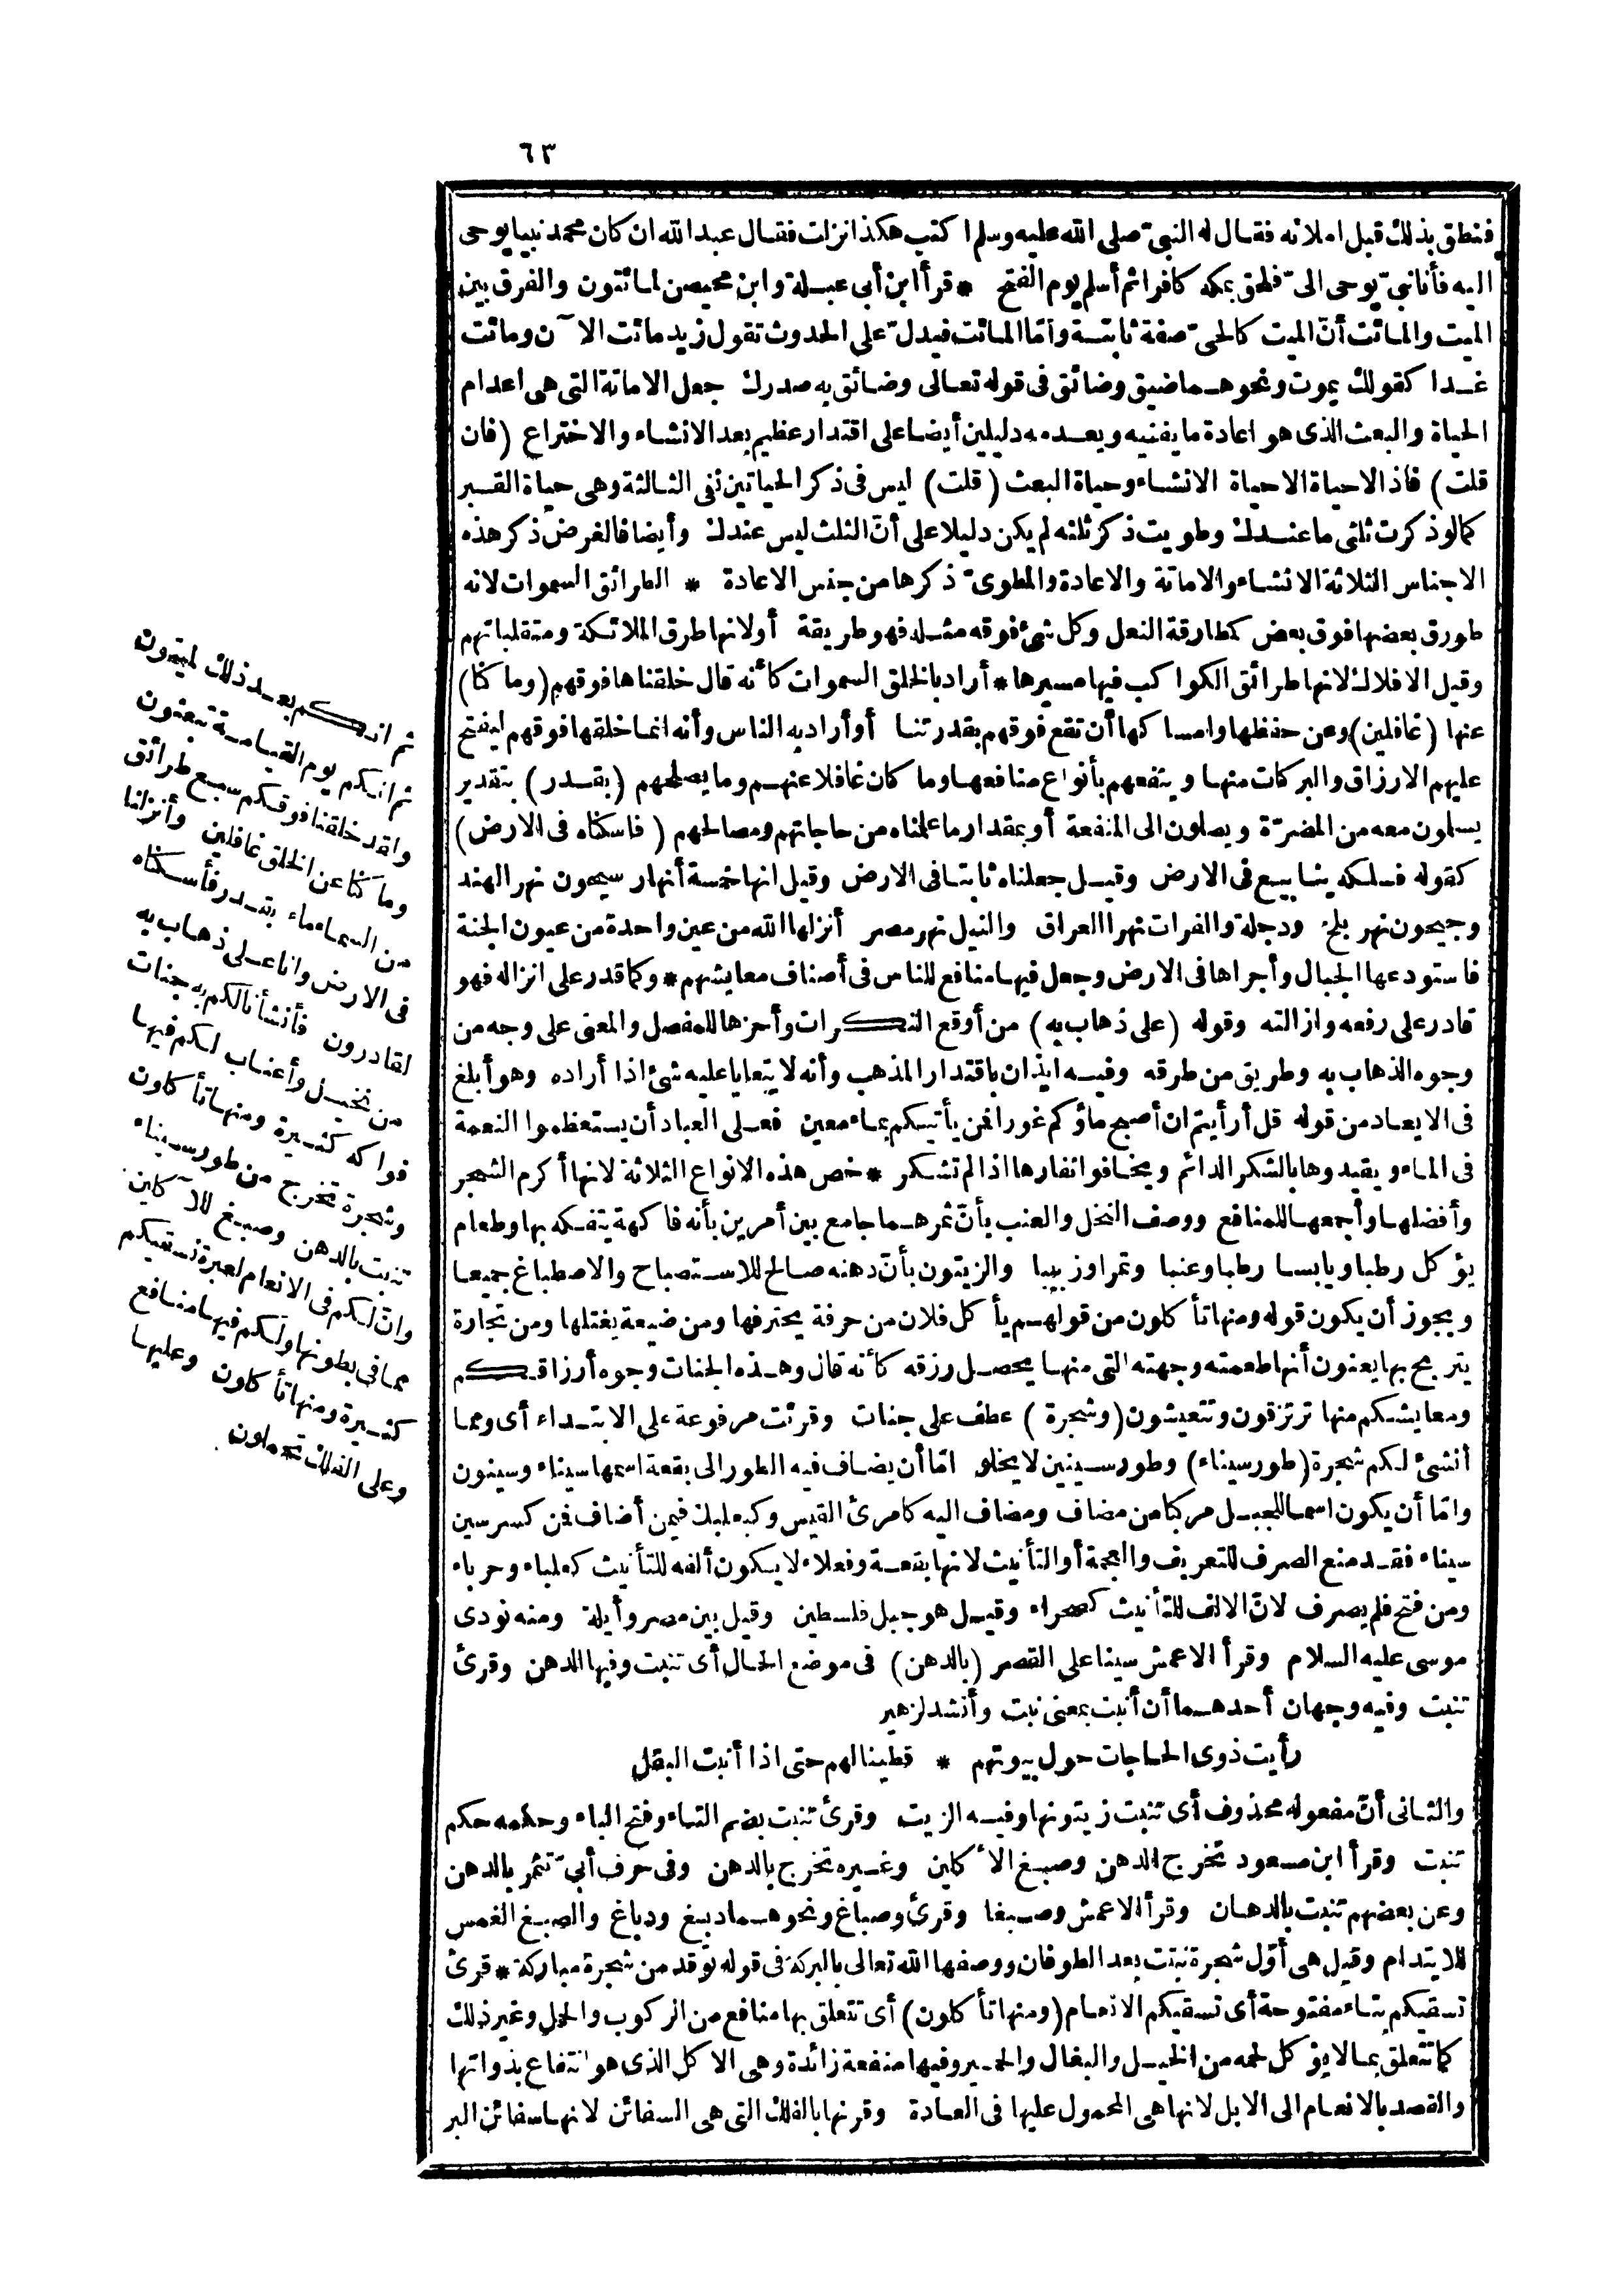 ٦٣
فنطق بذلك قبل املائه فقال له النبىّ صلى الله عليه وسلم اكتب هكذا نزلت فقال عبد الله ان كان محمد نبيا يوحى
اليه فأنا نبىّ يوحى الىّ فلحق بمكة كافرا ثم أسلم يوم الفتح * قرأ ابن أبى عبلة وابن محيصن لمائتون والفرق بين
الميت والمائت أنّ الميت كالحىّ صفة ثابتة وأمّا المائت فيدلّ على الحدوث تقول زيد مائت الآن ومائت
غدا كقولك يموت ونحوهما ضيق وضائق فى قوله تعالى وضائق به صدرك جعل الاماتة التى هى اعدام
الحياة والبعث الذى هو اعادة ما يفنيه ويعدمه دليلين أيضا على اقتدار عظيم بعد الانشاء والاختراع (فان
قلت) فاذا لا حياة الا حياة الانشاء وحياة البعث (قلت) ليس فى ذكر الحياتين نفى الثالثة وهى حياة القبر
كما لو ذكرت ثلثى ما عندك وطويت ذكر ثلثه لم يكن دليلا على أنّ الثلث ليس عندك وأيضا فالغرض ذكر هذه
الاجناس الثلاثة الانشاء والاماتة والاعادة والمطوىّ ذكرها من جنس الاعادة * الطرائق السموات لانه
طورق بعضها فوق بعض كطارقة النعل وكل شئ فوقه مثله فهو طريقة أو لانها طرق الملائكة ومتقلباتهم
وقيل الافلاك لانها طرائق الكواكب فيها مسيرها * أراد بالخلق السموات كأنه قال خلقناها فوقهم (وما كنا)
عنها (غافلين) وعن حفظها وامساكها أن تقع فوقهم بقدرتنا أو أراد به الناس وأنه انما خلقها فوقهم ليفتح
عليهم الارزاق والبركات منها وينفعهم بأنواع منافعها وما كان غافلا عنهم وما يصلحهم (بقدر) بتقدير
يسلمون معه من المضرّة ويصلون الى المنفعة أو بمقدار ما علمناه من حاجاتهم ومصالحهم (فاسكناه فى الارض)
كقوله فسلكه ينابيع فى الارض وقيل جعلناه ثابتا فى الارض وقيل انها خمسة أنهار سيحون نهر الهند
وجيحون نهر بلخ ودجلة والفرات نهرا العراق والنيل نهر مصر أنزلها الله من عين واحدة من عيون الجنة
فاستودعها الجبال وأجراها فى الارض وجعل فيها منافع للناس فى أصناف معايشهم * وكما قدر على انزاله فهو
قادر على رفعه وازالته وقوله (على ذهاب به) من أوقع النكرات وأحزها للمفصل والمعنى على وجه من
وجوه الذهاب به وطريق من طرقه وفيه ايذان باقتدار المذهب وأنه لا يتعايا عليه شئ اذا أراده وهو أبلغ
فى الايعاد من قوله قل أرأيتم ان أصبح ماؤكم غورا فمن يأتيكم بماء معين فعلى العباد أن يستعظموا النعمة
فى الماء ويقيدوها بالشكر الدائم ويخافوا نفارها اذا لم تشكر * خص هذه الانواع الثلاثة لانها أكرم الشجر
وأفضلها وأجمعها للمنافع ووصف النخل والعنب بأنّ ثمرهما جامع بين أمرين بأنه فاكهة يتفكه بها وطعام
يؤكل رطبا ويابسا رطبا وعنبا وتمرا وزبيبا والزيتون بأنّ دهنه صالح للاستصباح والاصطباغ جميعا
ويجوز أن يكون قوله ومنها تأكلون من قولهم يأكل فلان من حرفة يحترفها ومن ضيعة يغتلها ومن تجارة
يتربح بها يعنون أنها طعمته وجهته التى منها يحصل رزقه كأنه قال وهذه الجنات وجوه أرزاقكم
ومعايشكم منها ترتزقون وتتعيشون (وشجرة) عطف على جنات وقرئت مرفوعة على الابتداء أى ومما
أنشئ لكم شجرة (طور سيناء) وطور سينين لا يخلو امّا أن يضاف فيه الطور الى بقعة اسمها سيناء وسينون
وامّا أن يكون اسما للجبل مركبا من مضاف ومضاف اليه كامرئ القيس وكبعلبك فيمن أضاف فمن كسر سين
سيناء فقد منع الصرف للتعريف والعجمة أو التأنيث لانها بقعة وفعلاء لا يكون ألفه للتأنيث كعلباء وحرباء
ومن فتح فلم يصرف لانّ الالف للتأنيث كصحراء وقيل هو جبل فلسطين وقيل بين مصر وأيلة ومنه نودى
موسى عليه السلام وقرأ الاعمش سينا على القصر (بالدهن) فى موضع الحال أى تنبت وفيها الدهن وقرئ
تنبت وفيه وجهان أحدهما أن أنبت بمعنى نبت وأنشد لزهير
رأيت ذوى الحاجات حول بيوتهم * قطينا لهم حتى اذا أنبت البقل
والثانى أنّ مفعوله محذوف أى تنبت زيتونها وفيه الزيت وقرئ تنبت بضم التاء وفتح الباء وحكمه حكم
تنبت وقرأ ابن مسعود تخرج الدهن وصبغ الآكلين وغيره تخرج بالدهن وفى حرف أبىّ تثمر بالدهن
وعن بعضهم تنبت بالدهان وقرأ الاعمش وصبغا وقرئ وصباغ ونحوهما دبغ ودباغ والصبغ الغمس
للايتدام وقيل هى أوّل شجرة نبتت بعد الطوفان ووصفها الله تعالى بالبركة فى قوله توقد من شجرة مباركة * قرئ
تسقيكم بتاء مفتوحة أى تسقيكم الانعام (ومنها تأكلون) أى تتعلق بها منافع من الركوب والحمل وغير ذلك
كما تتعلق بما لا يؤكل لحمه من الخيل والبغال والحمير وفيها منفعة زائدة وهى الاكل الذى هو انتفاع بذواتها
والقصد بالانعام الى الابل لانها هى المحمول عليها فى العادة وقرنها بالفلك التى هى السفائن لانها سفائن البر
ثم انكم بعد ذلك لميتون
ثم انكم يوم القيامة تبعثون
ولقد خلقنا فوقكم سبع طرائق
وما كنا عن الخلق غافلين وأنزلنا
من السماء ماء بقدر فأسكناه
فى الارض وانا على ذهاب به
لقادرون فأنشأنا لكم به جنات
من نخيل وأعناب لكم فيها
فواكه كثيرة ومنها تأكلون
وشجرة تخرج من طور سيناء
تنبت بالدهن وصبغ للآكلين
وانّ لكم فى الانعام لعبرة نسقيكم
مما فى بطونها ولكم فيها منافع
كثيرة ومنها تأكلون وعليها
وعلى الفلك تحملون